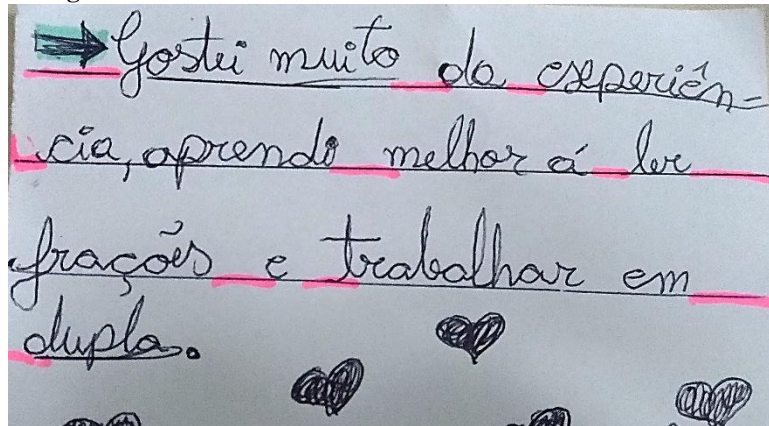 Gostei muito da esperiên-
cia, aprendi melhor á ler
frações e trabalhar em
dupla.